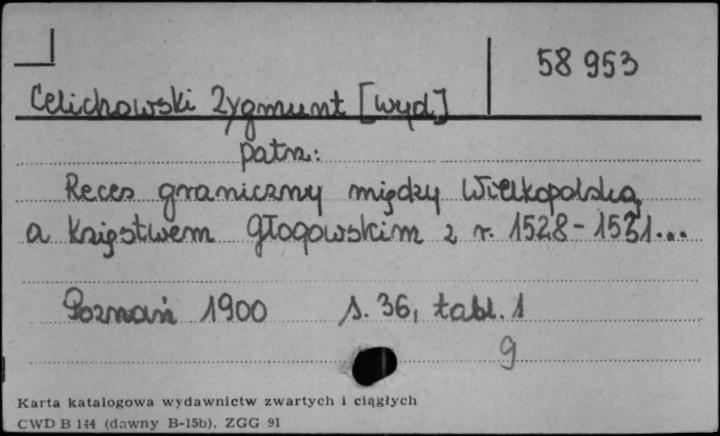 58 953
Celichowski Zygmunt [wyd]
patrz:
Reces graniczny między Wielkopolską
a Księstwem Głogowskim z r. 1528-1531...
Poznań 1900 s. 36, tabl. 1
9
Karta katalogowa wydawnictw zwartych i ciągłych
CWD B 144 (dawny B-15b). ZGG 91